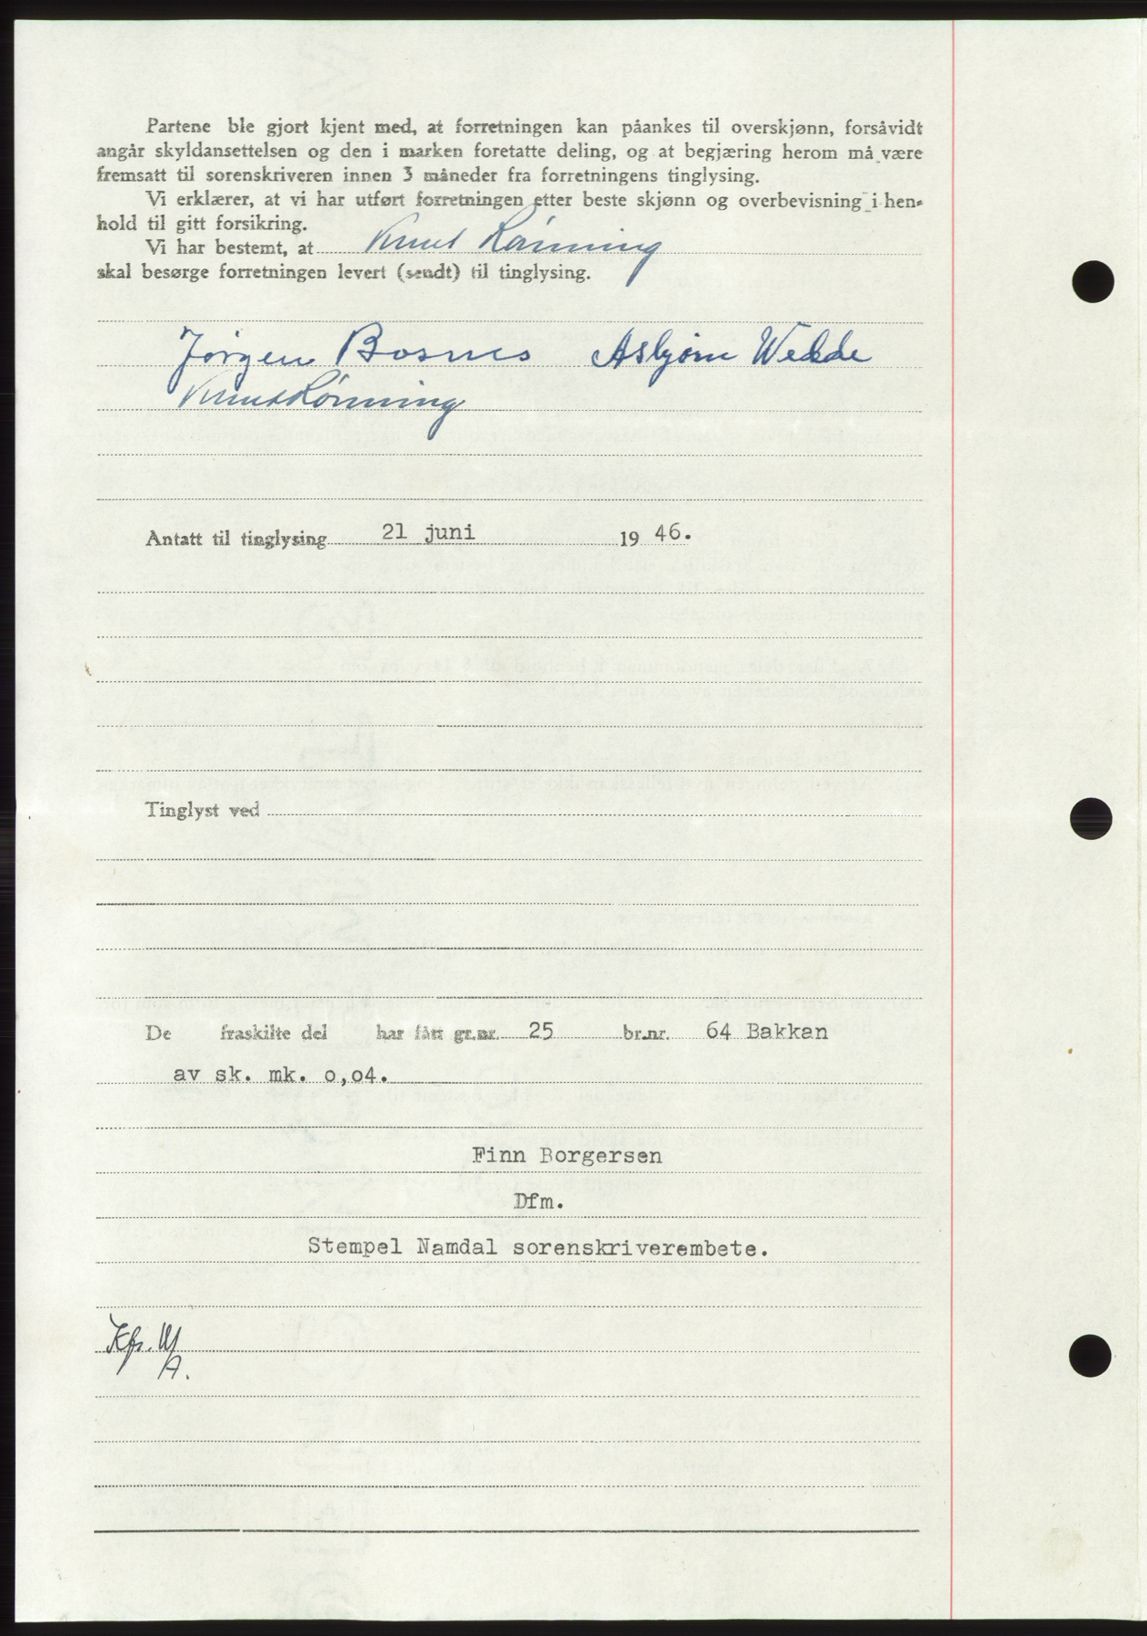 Partene ble gjort kjent med, at forretningen kan påankes til overskjønn, forsåvidt
angår skyldansettelsen og den i marken foretatte deling, og at begjæring herom må være
fremsatt til sorenskriveren innen 3 måneder fra forretningens tinglysing.
Vi erklærer, at vi har utført forretningen etter beste skjønn og overbevisning i hen-
hold til gitt forsikring.
Vi har bestemt, at Knut Rønning
skal besørge forretningen levert (sendt) til tinglysing.
Jørgen Bosnes Asbjørn Wedde
Knut Rønning
Antatt til tinglysing 21 juni 19 46.
Tinglyst ved
De fraskilte del har fått gr.nr. 25 br.nr. 64 Bakkan
av sk. mk. o,o4.
Finn Borgersen
Dfm.
Stempel Namdal sorenskriverembete.
Kfr.
A.